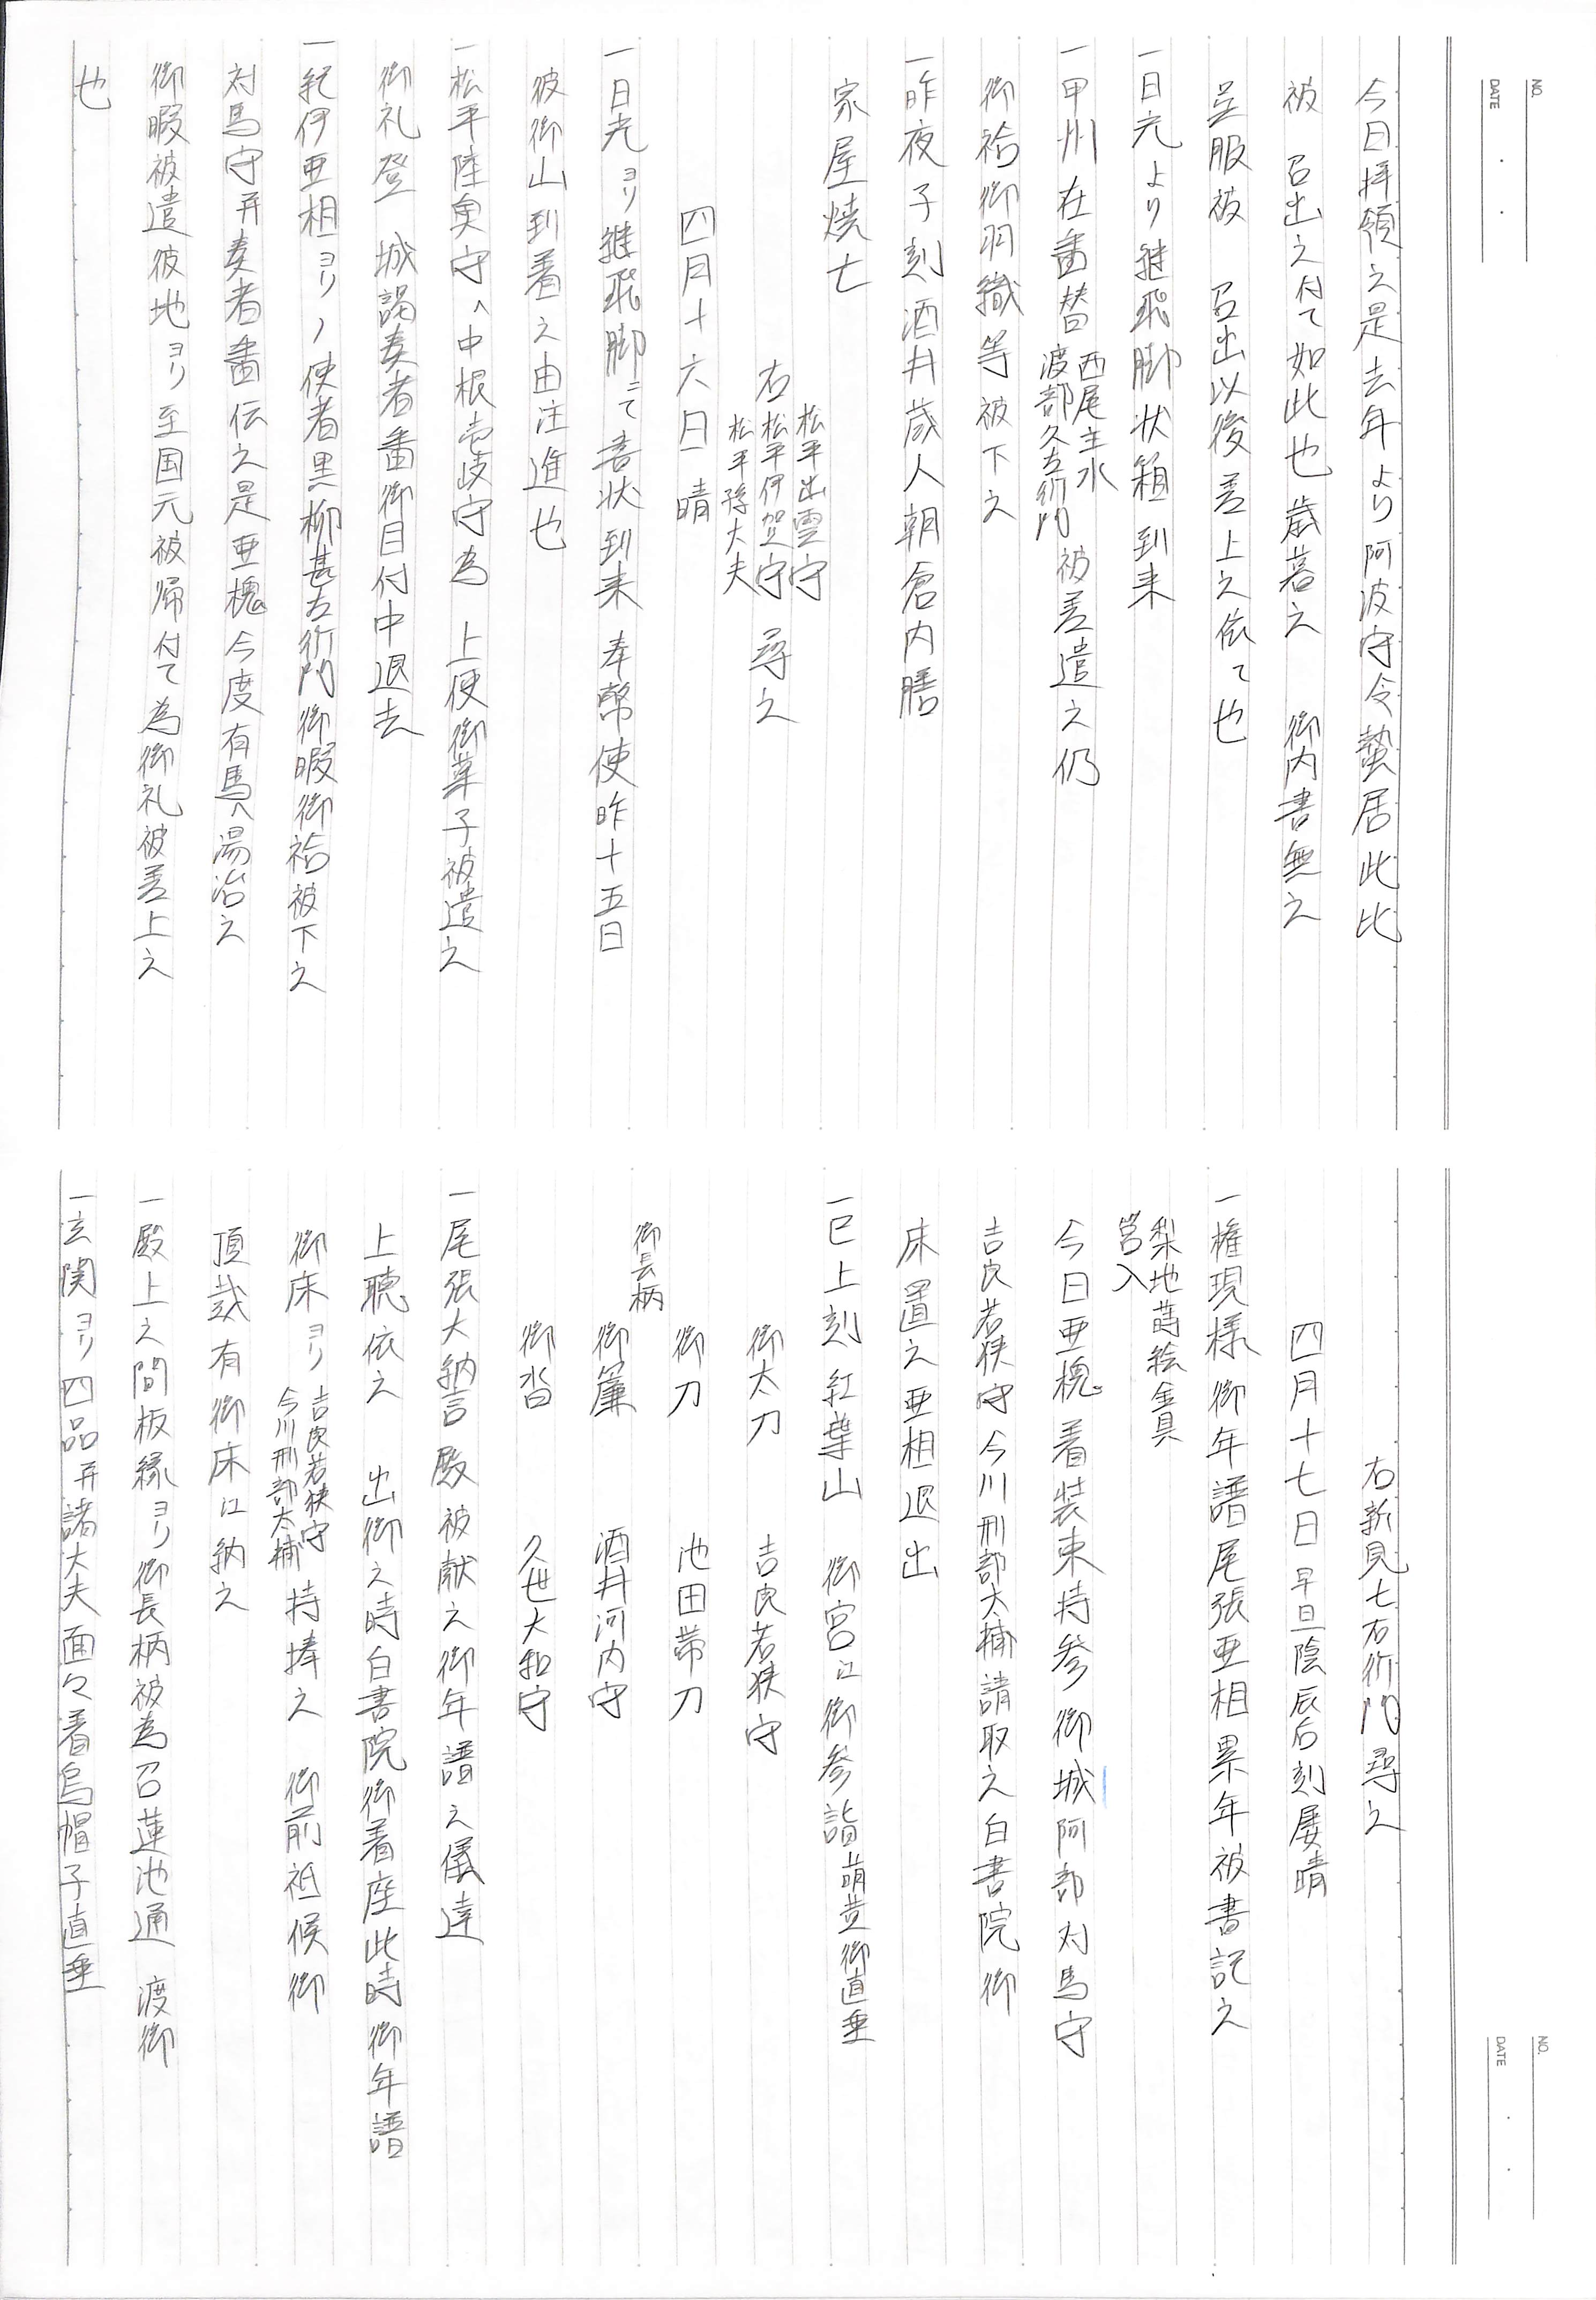 NO.
DATE
今日拝領之是去年より阿波守令蟄居此比
被 召出之付て如此也歳暮之 御内書無之
呈服被 召出以後差上之依て也
一日光より継飛脚状箱到来
一甲州在番替 西尾主水 渡部久左衛門 被差遣之仍
御袷御羽織等被下之
一昨夜子刻酒井蔵人朝倉内膳
家屋焼亡
松平出雲守
右松平伊賀守 尋之
松平孫大夫
四月十六日 晴
一日光ヨリ継飛脚ニて書状到来奉幣使昨十五日
彼御山到着之由注進也
一松平陸奥守へ中根壱岐守為 上使御菓子被遣之
御礼登 城謁奏者番御目付中退去
一紀伊亜相ヨリノ使者黒柳甚左衛門御暇御袷被下之
対馬守并奏者番伝之是亜槐今度有馬へ湯治之
御暇被遣彼地ヨリ至国元被帰付て為御礼被差上之
也
NO.
DATE
右新見七右衛門尋之
四月十七日 早旦陰辰后刻屡晴
一権現様御年譜尾張亜相累年被書記之
梨地蒔絵金具
筥入
今日亜槐着装束持参御城阿部対馬守
吉良若狭守今川刑部大輔請取之白書院御
床置之亜相退出
一巳上刻紅葉山 御宮江御参詣 萌黄御直垂
御太刀 吉良若狭守
御刀 池田帯刀
御長柄
御簾 酒井河内守
御沓 久世大和守
一尾張大納言殿被献之御年譜之儀達
上聴依之 出御之時白書院御着座此時御年譜
御床ヨリ 吉良若狭守 今川刑部大輔 持捧之 御前祗候御
頂戴有御床江納之
一殿上之間板縁ヨリ御長柄被為召蓮池通 渡御
一玄関ヨリ四品并諸大夫面々着烏帽子直垂